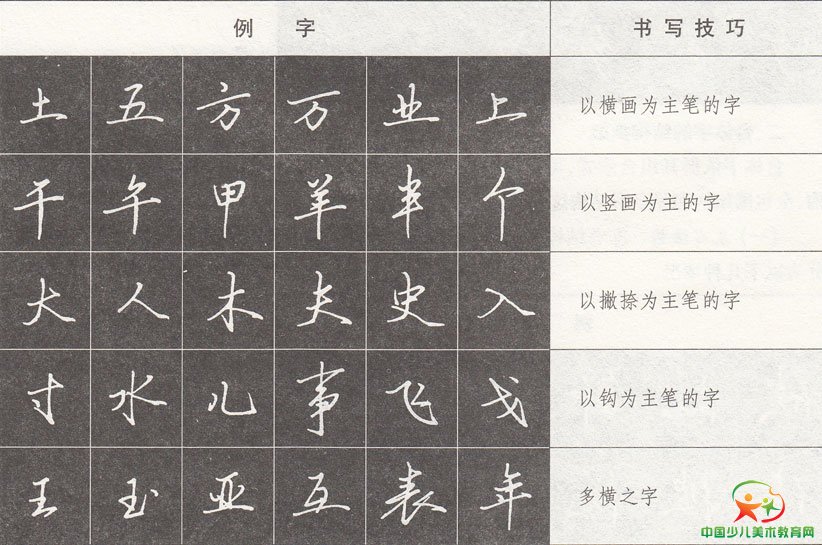 例 字 书写技巧
土 五 方 万 业 上 以横画为主笔的字
干 午 甲 羊 半 个 以竖画为主的字
大 人 木 夫 史 入 以撇捺为主笔的字
寸 水 儿 事 飞 戈 以钩为主笔的字
王 玉 亚 互 表 年 多横之字
中国少儿美术教育网